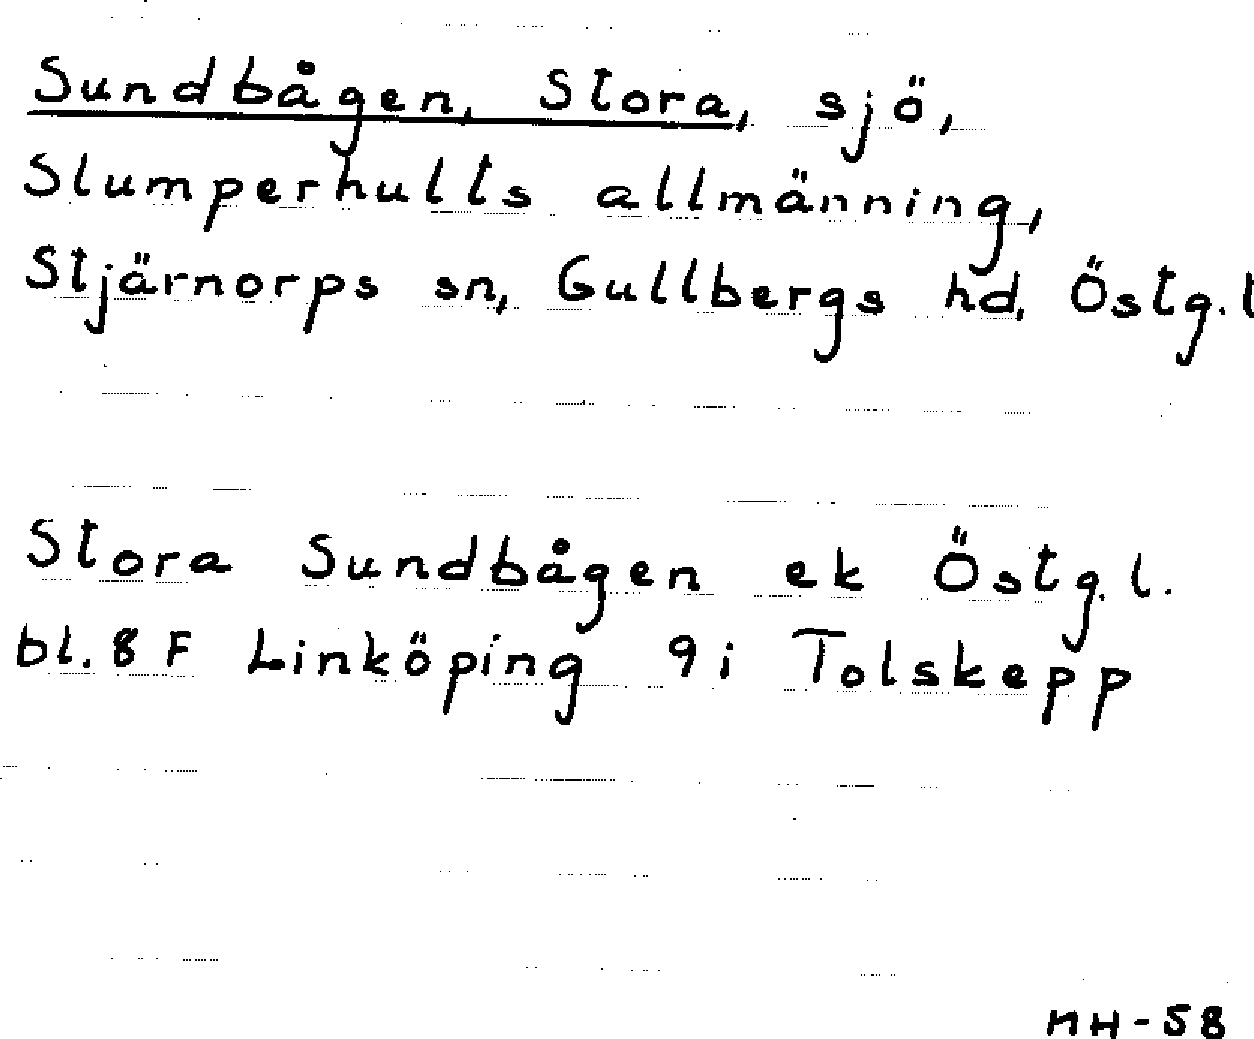 Sundbågen, Stora, sjö,
Slumperhults allmänning,
Stjärnorps sn, Gullbergs hd, Östg.l
Stora Sundbågen ek Östg.l.
bl. 8 F Linköping 9 i Tolskepp
MH-58